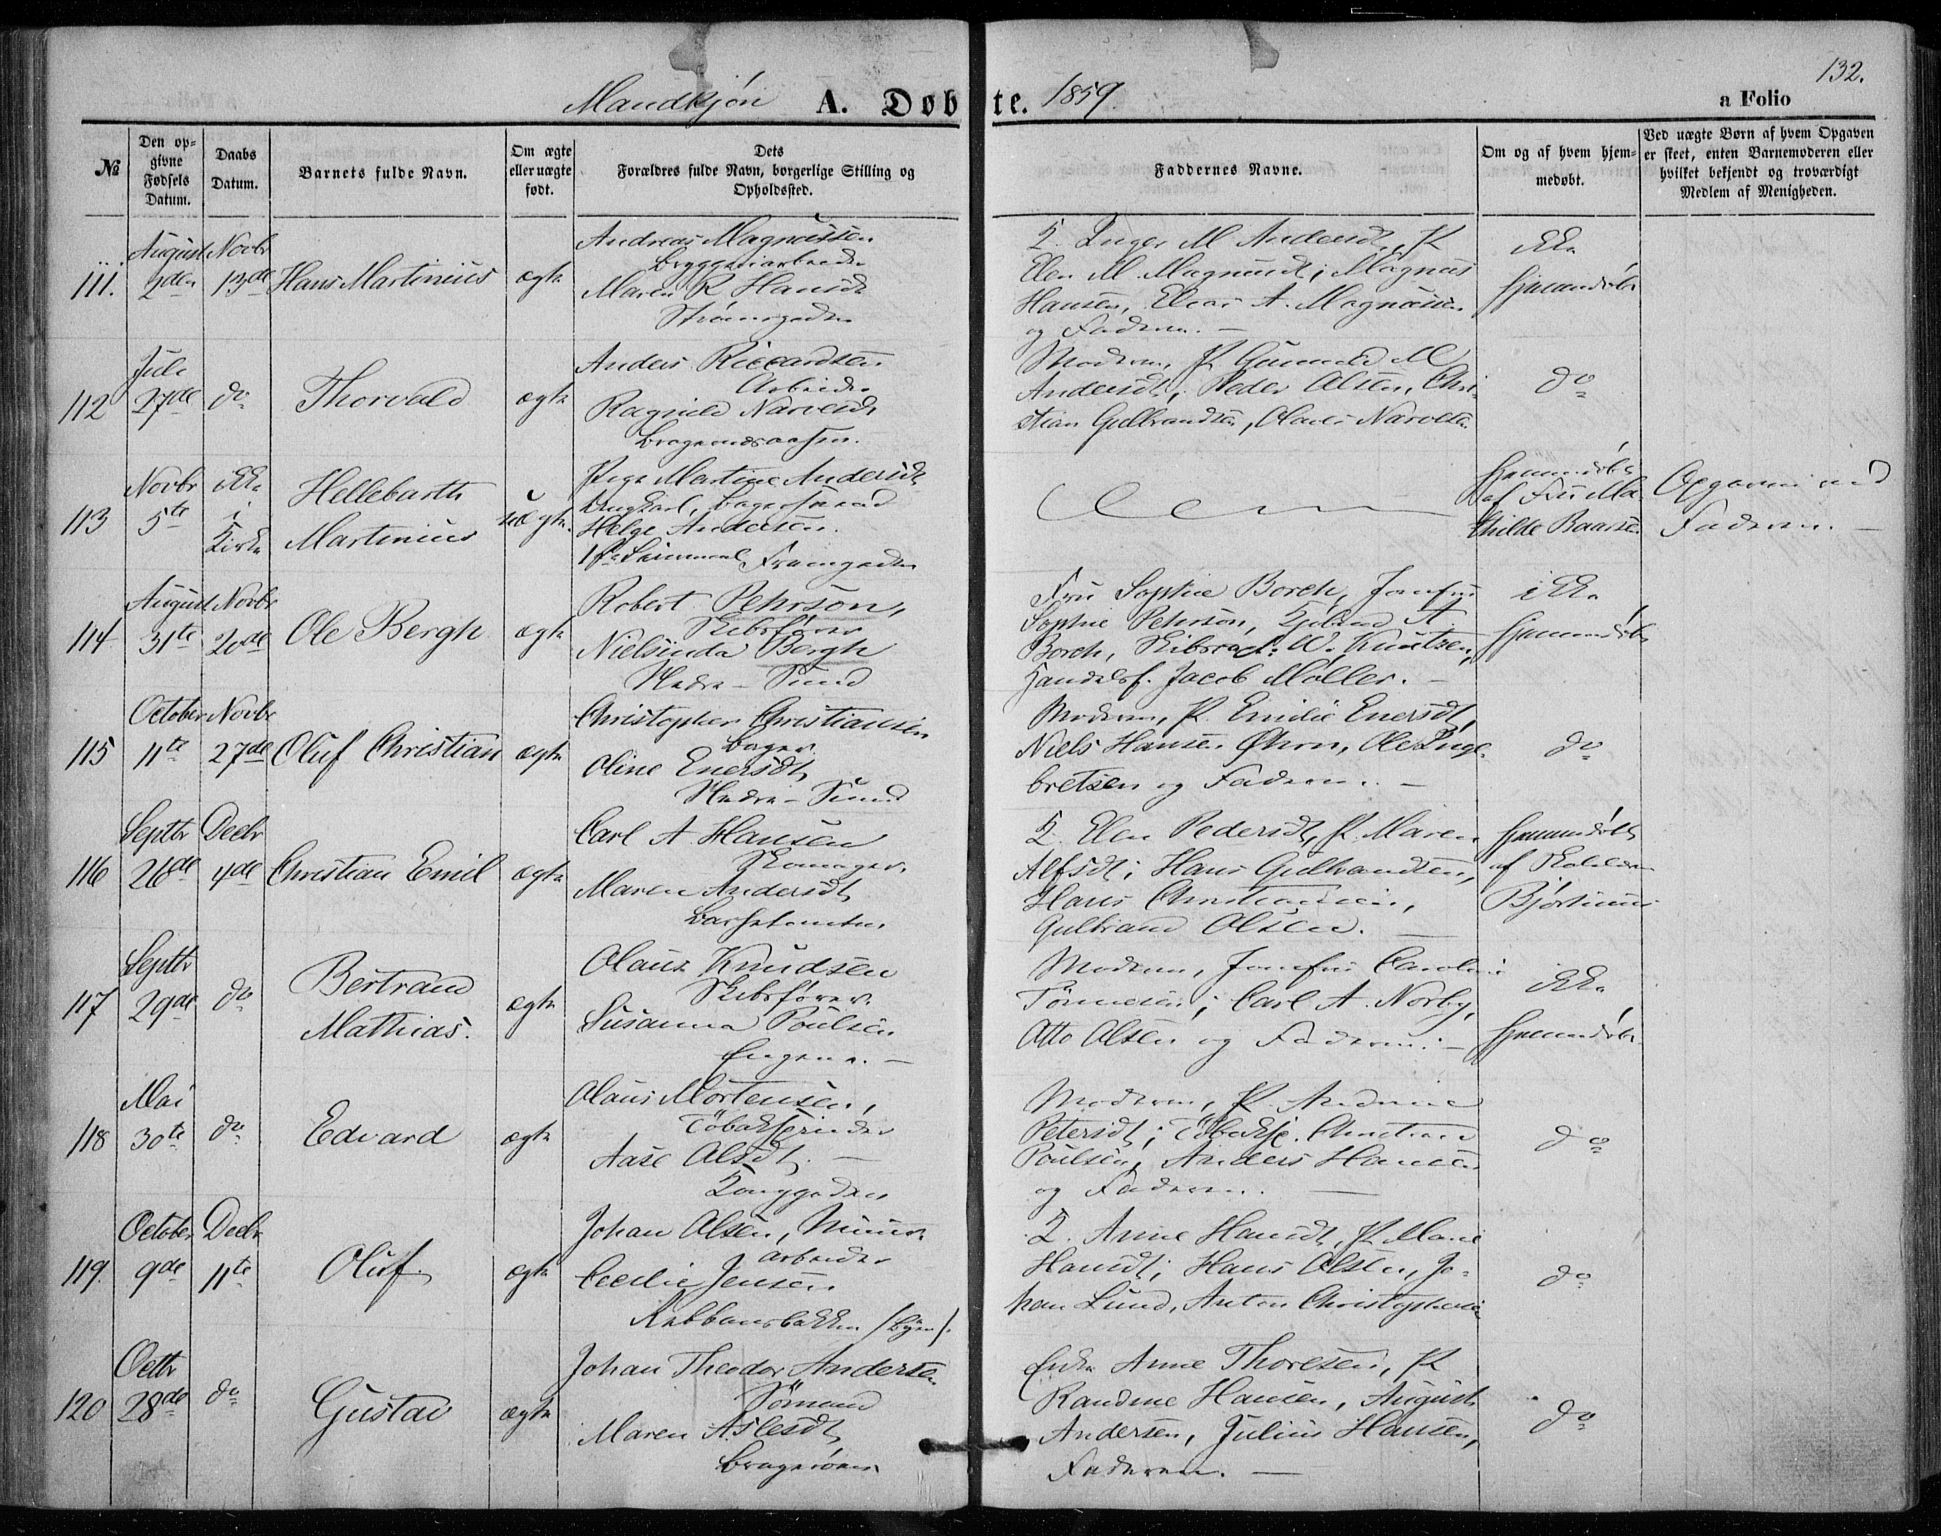 132.
Mandkjøn A. Døbte. 1859.
a Folio
№
Den opgivne Fødsels Datum.
Daabs Datum.
Barnets fulde Navn.
Om ægte eller uægte født.
Dets Forældres fulde Navn, borgerlige Stilling og Opholdssted.
Faddernes Navne.
Om og af hvem hjemmedøbt.
Ved uægte Børn af hvem Opgaven er skeet, enten Barnemoderen eller hvilket bekjendt og troværdigt Medlem af Menigheden.
111. August 2den Novbr 13de Hans Martinius ægte
Andreas Magnussen
Bryggeriarbeider
Maren K Hansdt
Strømsgaden
K. Inger M Andersdt, P.
Elen M. Magnusdt; Magnus
Hansen, Elias A. Magnussen
og Faderen. —
ikke
hjemmedøbt
112 Juli 27de do Thorvald ægte
Anders Riccardsen
Arbeider
Ragnild Narvesdt
Bragernæsaasen.
Moderen, P. Gunnild M
Andersdt; Peder Olsen, Chri-
stian Gulbrandsen, Olaus Narvesen
do
113 Novbr 5te ikke i Kirke Hellebarth Martinius uægte.
Pige Martine Andersdt
Ungkarl, Bagersvend
Helge Andersen.
Hjemmedøbt
af Fru Ma-
thilde Baarse
Opgaven ved
Faderen. —
114 August 31te Novbr 20de Ole Bergh ægte
Robert Pehrson,
Skibsfører
Nielsinda Bergh
Nedre-Sund
Fru Sophie Borch, Jomfru
Sophie Pehrson, A
Borch, W. Knutzen,
Handelsf. Jacob Møller. —
ikke
hjemmedøbt
115 October 11te Novbr 27de Oluf Christian ægte
Christopher Christiansen
Bager
Oline Enersdt
Nedre-Sund
Moderen, P. Emilie Enersdt,
Niels Hansen Øhrn, Ole Inge-
bretsen og Faderen. —
do
116 Septbr 26de Decbr 4de Christian Emil ægte
Carl A Hansen
Skomager.
Maren Andersdt
K. Elen Pedersdt, P. Maren
Alfsdt; Hans Gulbrandsen,
Hans Christiansen,
Gulbrand Olsen. —
hjemmedøbt
af
Bjørtumus
117 Septbr 29de do Bertrand Mathias. ægte
Olaus Knudsen
Skibsfører.
Susanna Poulsen
Engene. —
Moderen, Jomfru Caroline
Tønnesen; Carl A. Norby,
Otto Olsen og Faderen. —
ikke
hjemmedøbt
118 Mai 30te do Edvard ægte
Olaus Mortensen,
Tobakspinder
Aase Olsdt. —
Konggaden
Moderen, P. Andrine
Petersdt; Tobaksp. Christian
Poulsen, Anders Hansen
og Faderen. —
do
119. October 9de Decbr 11te Oluf. ægte
Johan Olsen, Muur-
arbeider
Cecilie Jensen
Kobbensbakken (Byen).
K. Anne Hansdt, P. Marie
Hansdt; Hans Olsen, Jo-
han Lund, Anton Christophersen
do
120 Octbr 28de do Gustav ægte
Johan Theodor Andersen
Sømand
Maren Aslesdt
Bragerøen
Enke Anne Thoresen, P.
Randine Hansen, August
Andersen, Julius Hansen,
Faderen. —
do